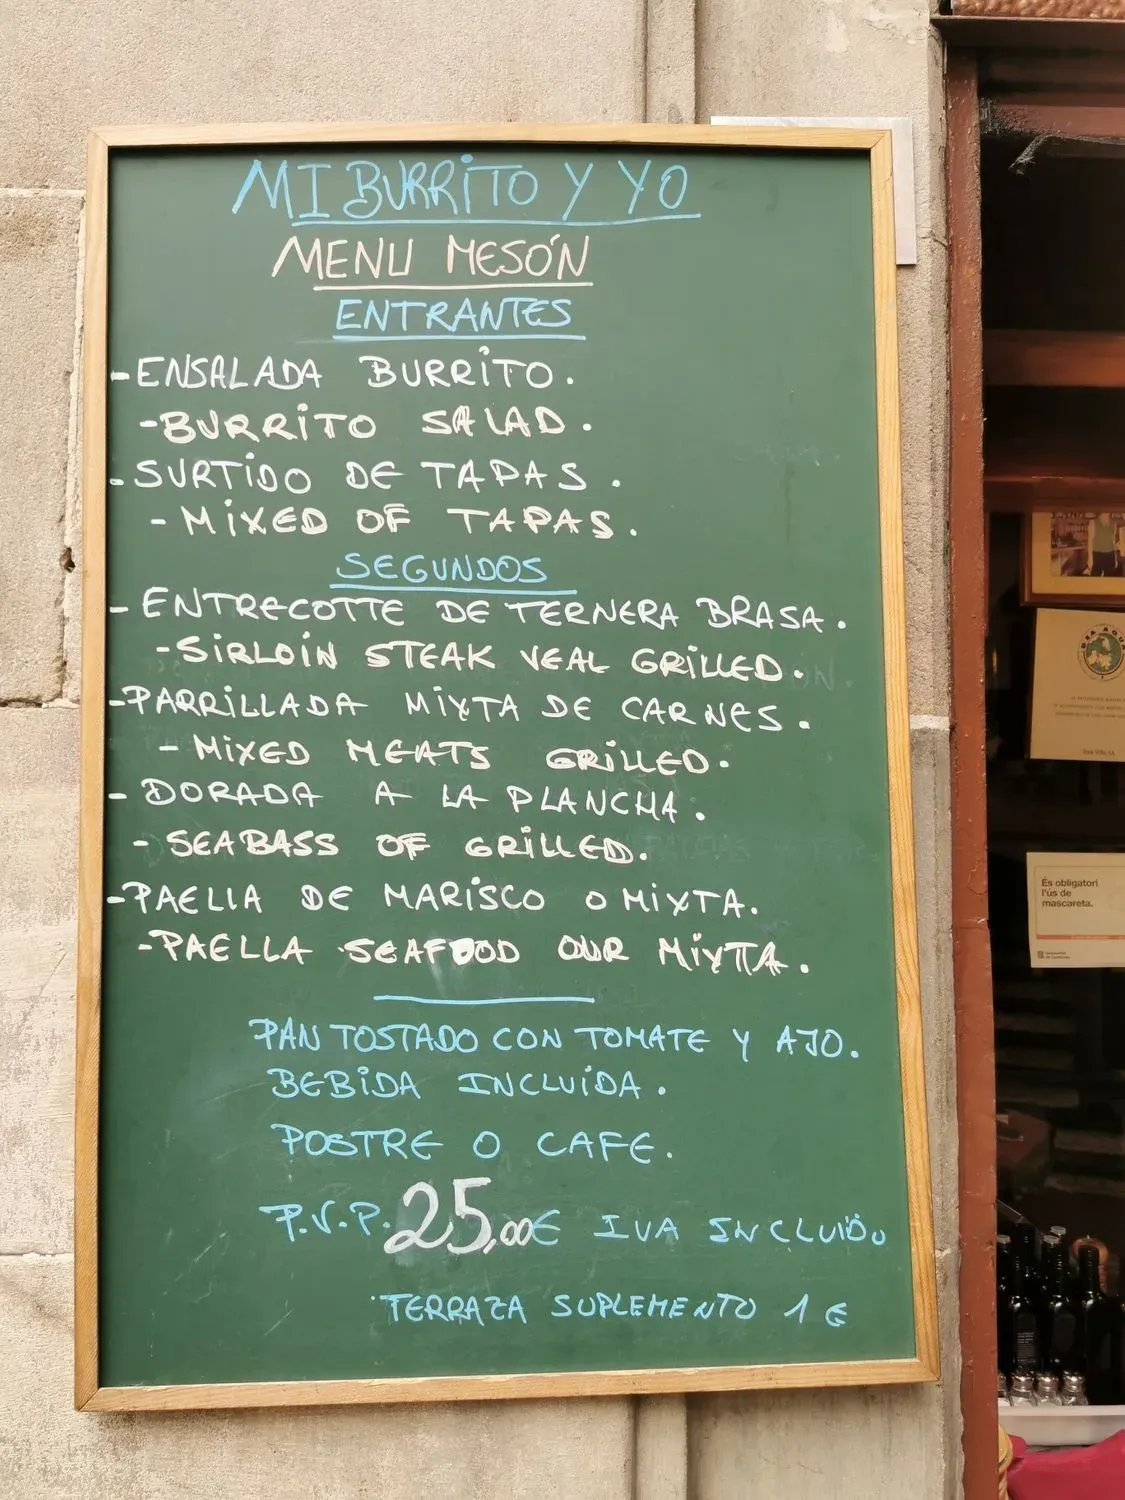 MI BURRITO Y YO
MENU MESÓN
ENTRANTES
-ENSALADA BURRITO.
-BURRITO SALAD.
-SURTIDO DE TAPAS.
-MIXED OF TAPAS.
SEGUNDOS
-ENTRECOTTE DE TERNERA BRASA.
-SIRLOIN STEAK VEAL GRILLED.
-PARRILLADA MIXTA DE CARNES.
-MIXED MEATS GRILLED.
-DORADA A LA PLANCHA.
-SEABASS OF GRILLED.
-PAELLA DE MARISCO O MIXTA.
-PAELLA SEAFOOD OUR MIXTA.
PAN TOSTADO CON TOMATE Y AJO.
BEBIDA INCLUÍDA.
POSTRE O CAFE.
P.V.P. 25,00€ IVA INCLUIDO
TERRAZA SUPLEMENTO 1 €
És obligatori
l'ús de
mascareta.